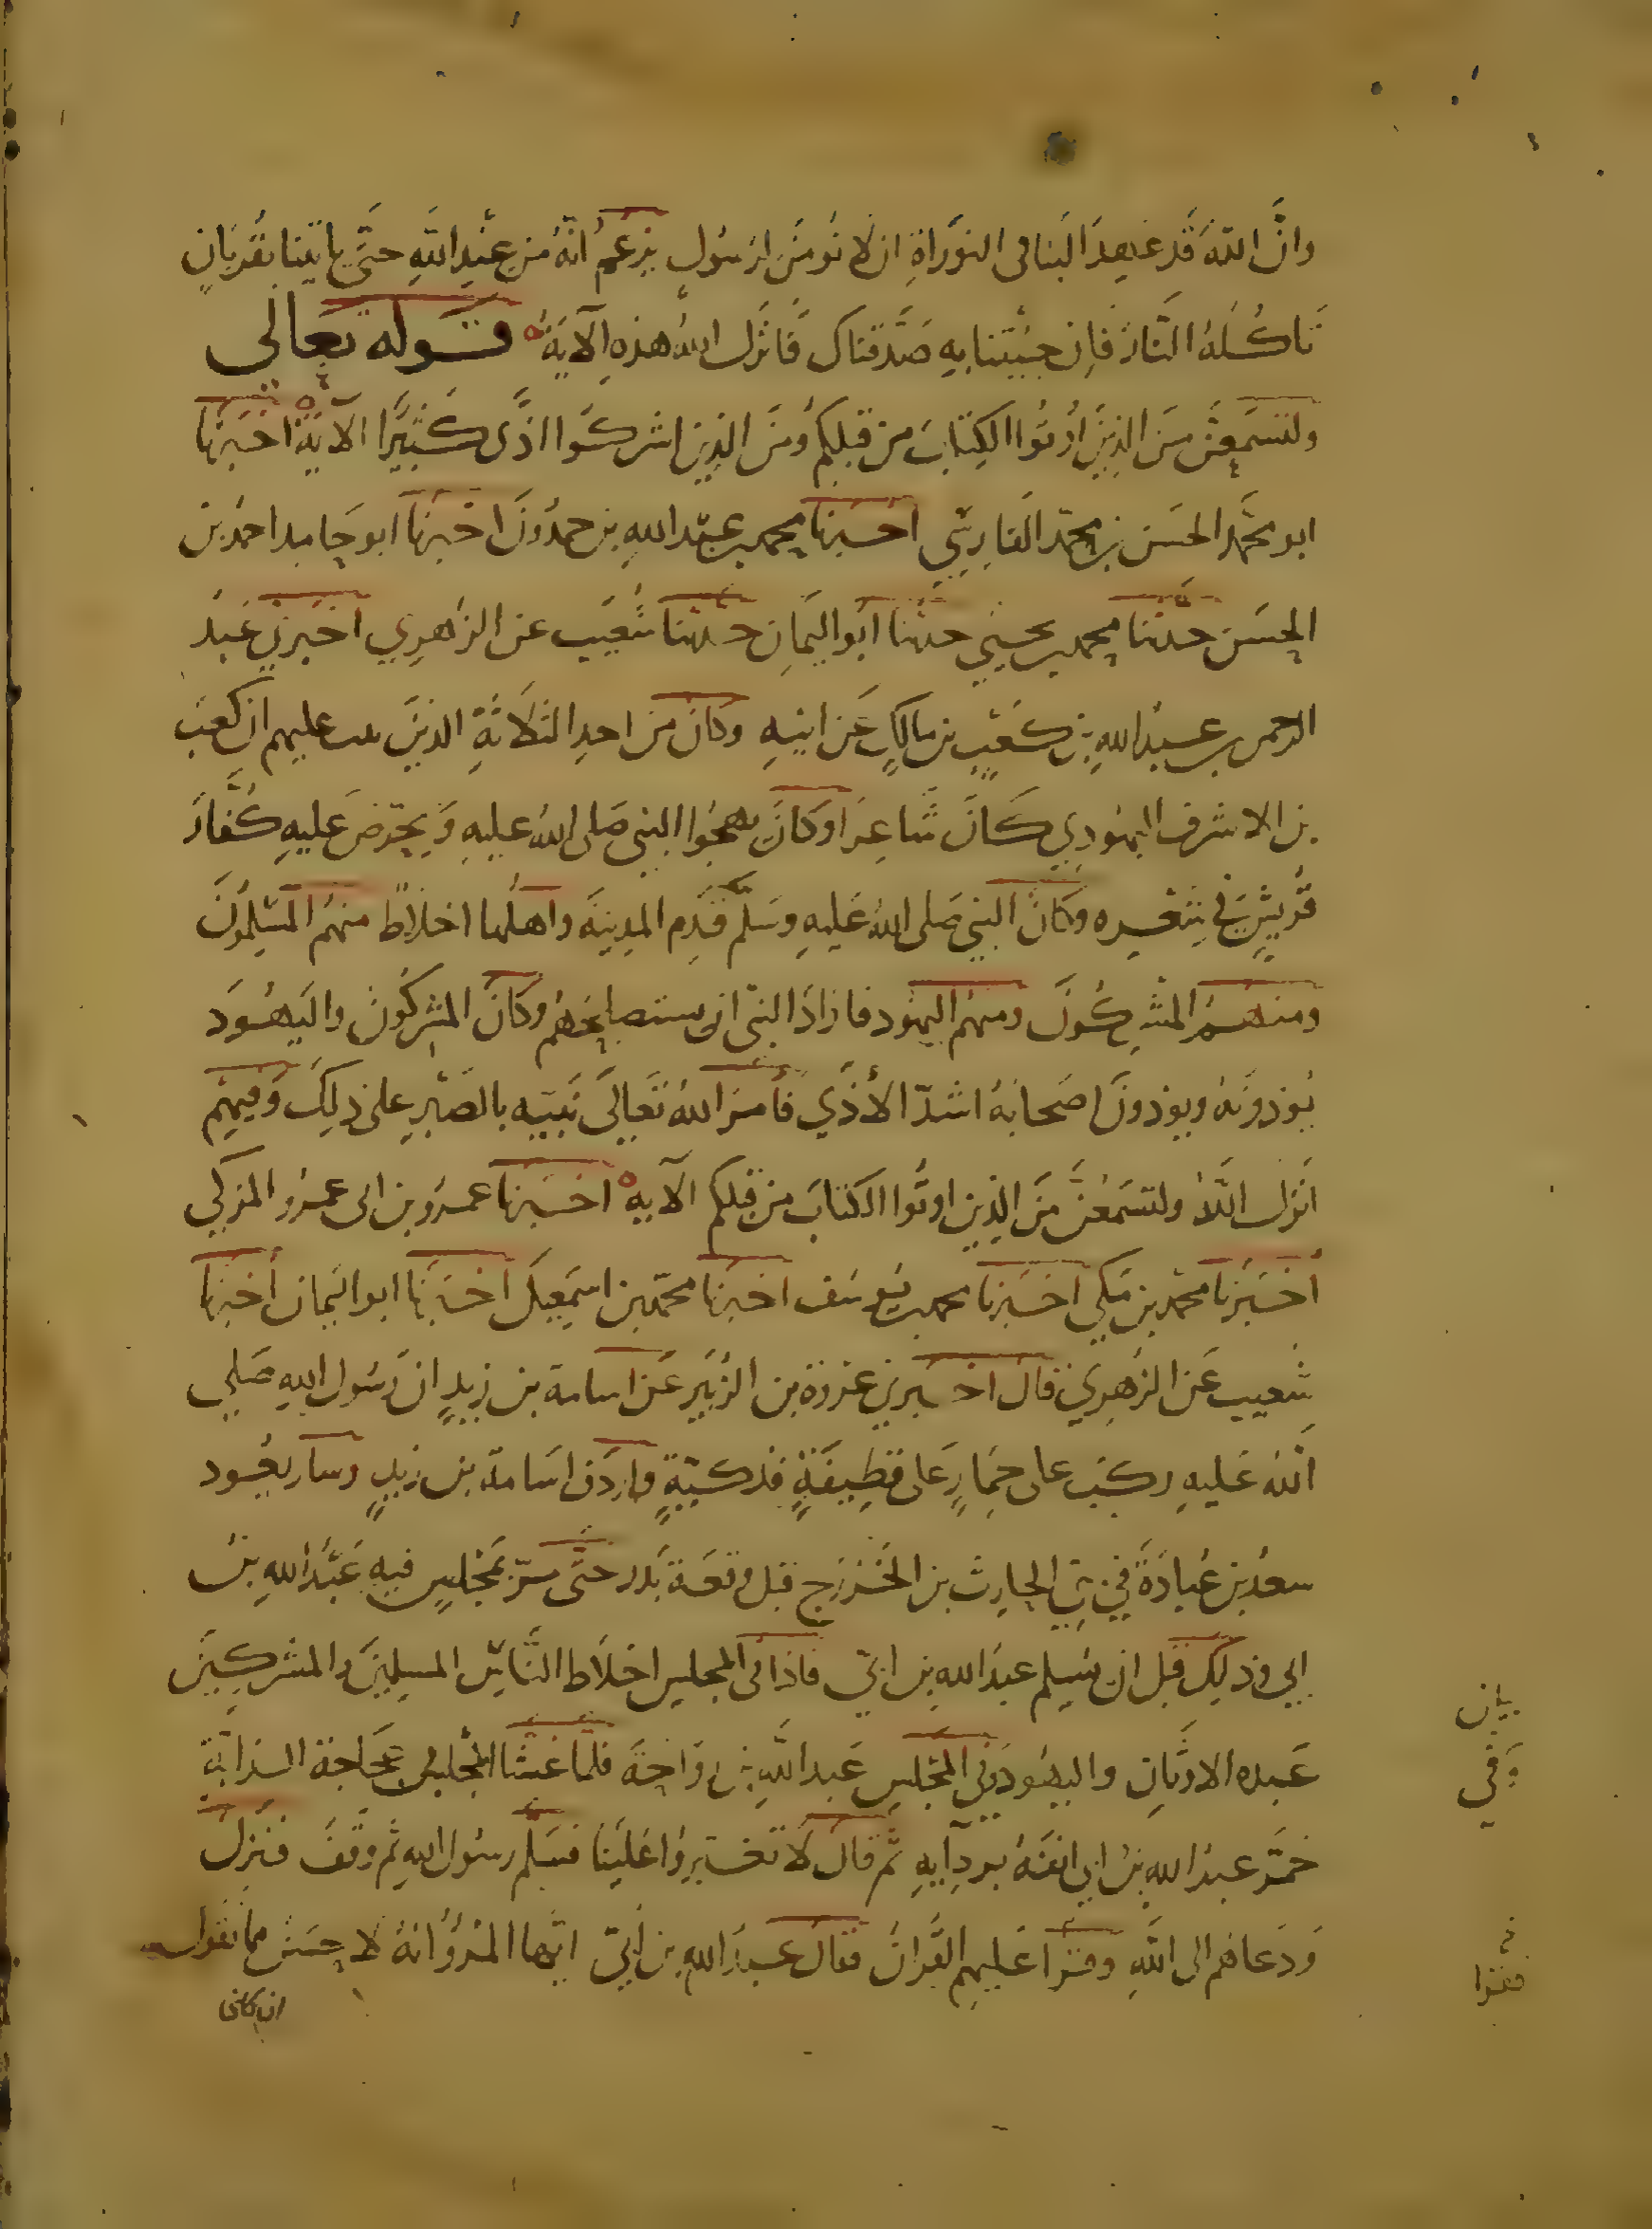 وانّ الله قد عهد الينا فى التوراة ان لا نؤمن لرسول يزعم انه من عند الله حتى ياتينا بقربان
تاكله النار فان جئتنا به صدقناك فانزل الله هذه الآية قوله تعالى
ولتسمعن من الذين اوتوا الكتاب من قبلكم ومن الذين اشركوا اذى كثيرا الآية اخبرنا
ابو محمد الحسن بن محمد الفارسي اخبرنا محمد بن عبد الله بن حمدون اخبرنا ابو حامد احمد بن
الحسن حدثنا محمد بن يحيى حدثنا ابو اليمان حدثنا شعيب عن الزهري اخبرني عبد
الرحمن بن عبد الله بن كعب بن مالك عن ابيه وكان من احد الثلاثة الذين تيب عليهم ان كعب
بن الاشرف اليهودي كان شاعرا وكان يهجوا النبي صلى الله عليه ويحرض عليه كفار
قريش في شعره وكان النبي صلى الله عليه وسلم قدم المدينة واهلها اخلاط منهم المسلمون
ومنهم المشركون ومنهم اليهود فاراد النبي ان يستصلحهم وكان المشركون واليهود
يؤذونه ويوذون اصحابه اشد الأذي فأمر الله تعالى نبيه بالصبر على ذلك وفيهم
انزل الله ولتسمعن من الذين اوتوا الكتاب من قبلكم الآيه اخبرنا عمرو بن ابى عمرو المزكي
أخبرنا محمد بن مكي اخبرنا محمد بن يوسف اخبرنا محمد بن اسمعيل أخبرنا ابو اليمان أخبرنا
شعيب عن الزهري قال اخبرني عروة بن الزبير عن اسامة بن زيد ان رسول الله صلى
الله عليه ركب على حمار على قطيفة فدكية واردف اسامة بن زيد وسار يعود
سعد بن عبادة في بني الحارث بن الخزرج قبل وقعة بدر حتى مر بمجلس فيه عبد الله بن
ابي وذلك قبل ان يسلم عبد الله بن ابي فاذا فى المجلس اخلاط الناس المسلمين والمشركين
عبده الاوثان واليهود وفى المجلس عبد الله بن رواحة فلما غشا المجلس عجاجة الدابة
خمر عبد الله بن ابي انفه بردآيه ثم قال لا تغبروا علينا فسلم رسول الله ثم وقف فنزل
ودعاهم الى الله وقرا عليهم القران فقال عبد الله بن أبي ايها المرؤ انه لا حسن مما تقول
ان كان
وفي